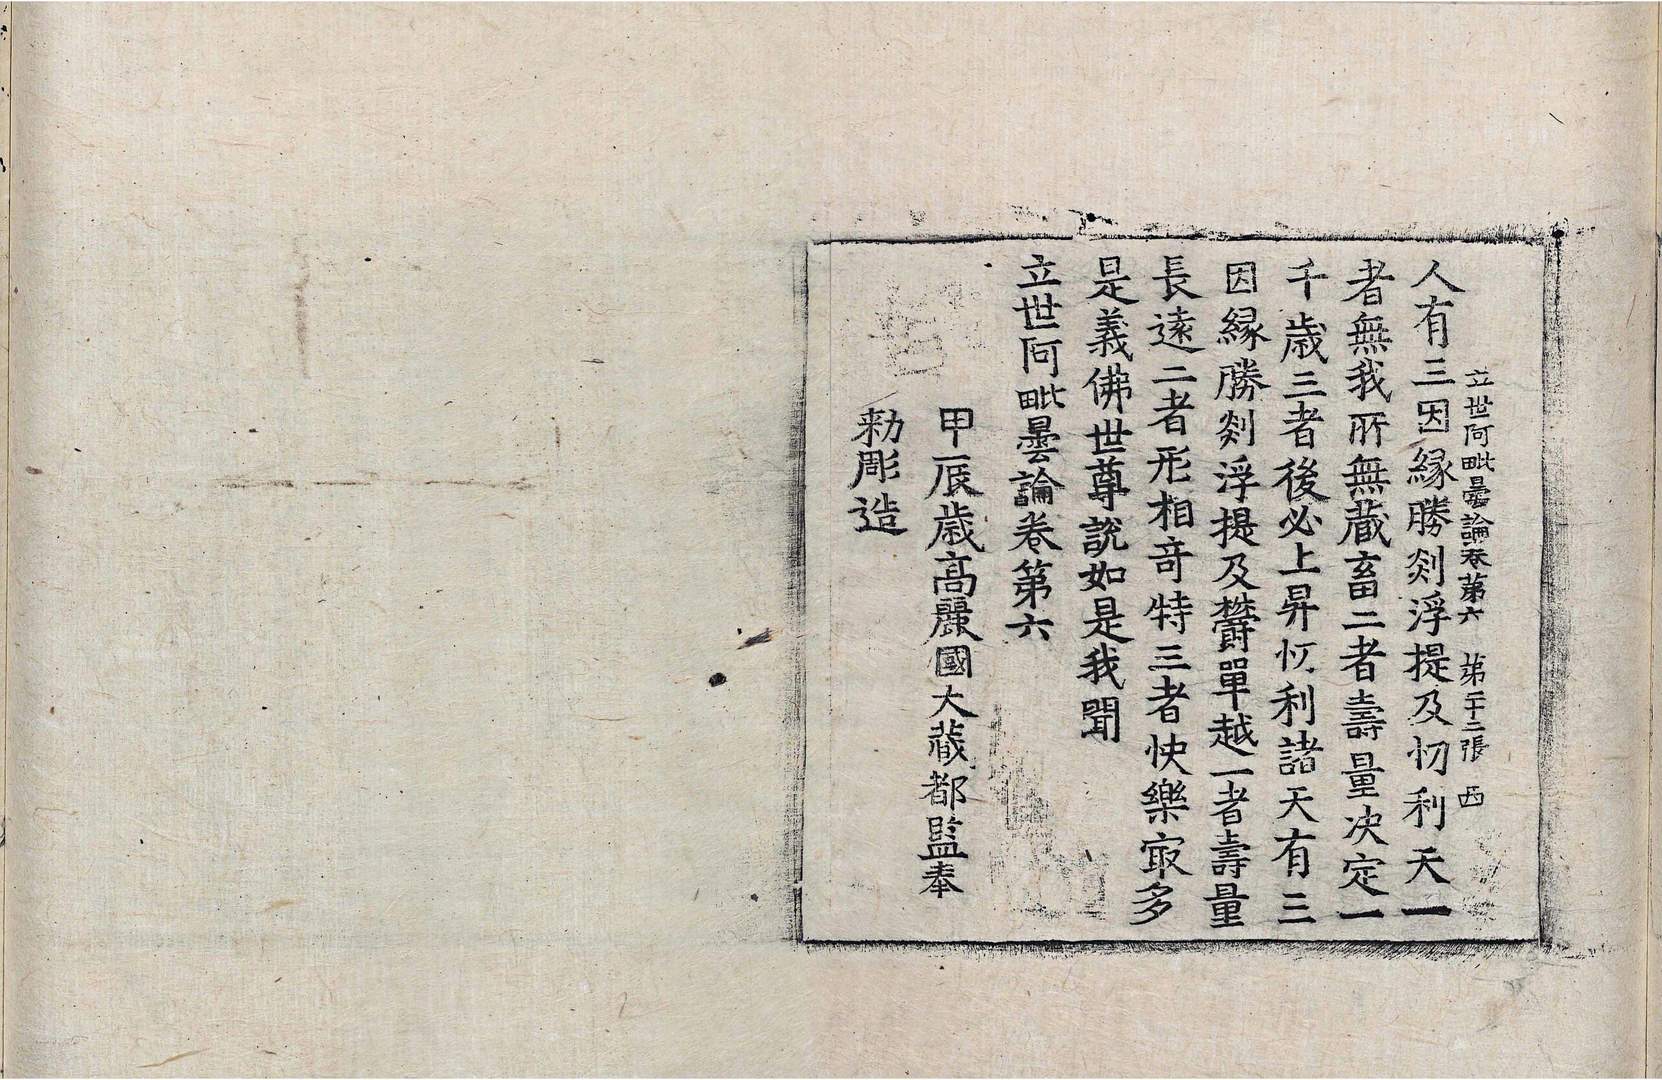 立世阿毗曇論卷第六 第二十二張 西
人有三因縁勝剡浮提及忉利天一
者無我所無蔵畜二者壽量决定一
千歳三者後必上昇忉利諸天有三
因縁勝剡浮提及欝單越一者壽量
長遠二者形相竒特三者快樂㝡多
是義佛世尊說如是我聞
立世阿毗曇論卷第六
甲辰歳高麗國大藏都監奉
勅彫造